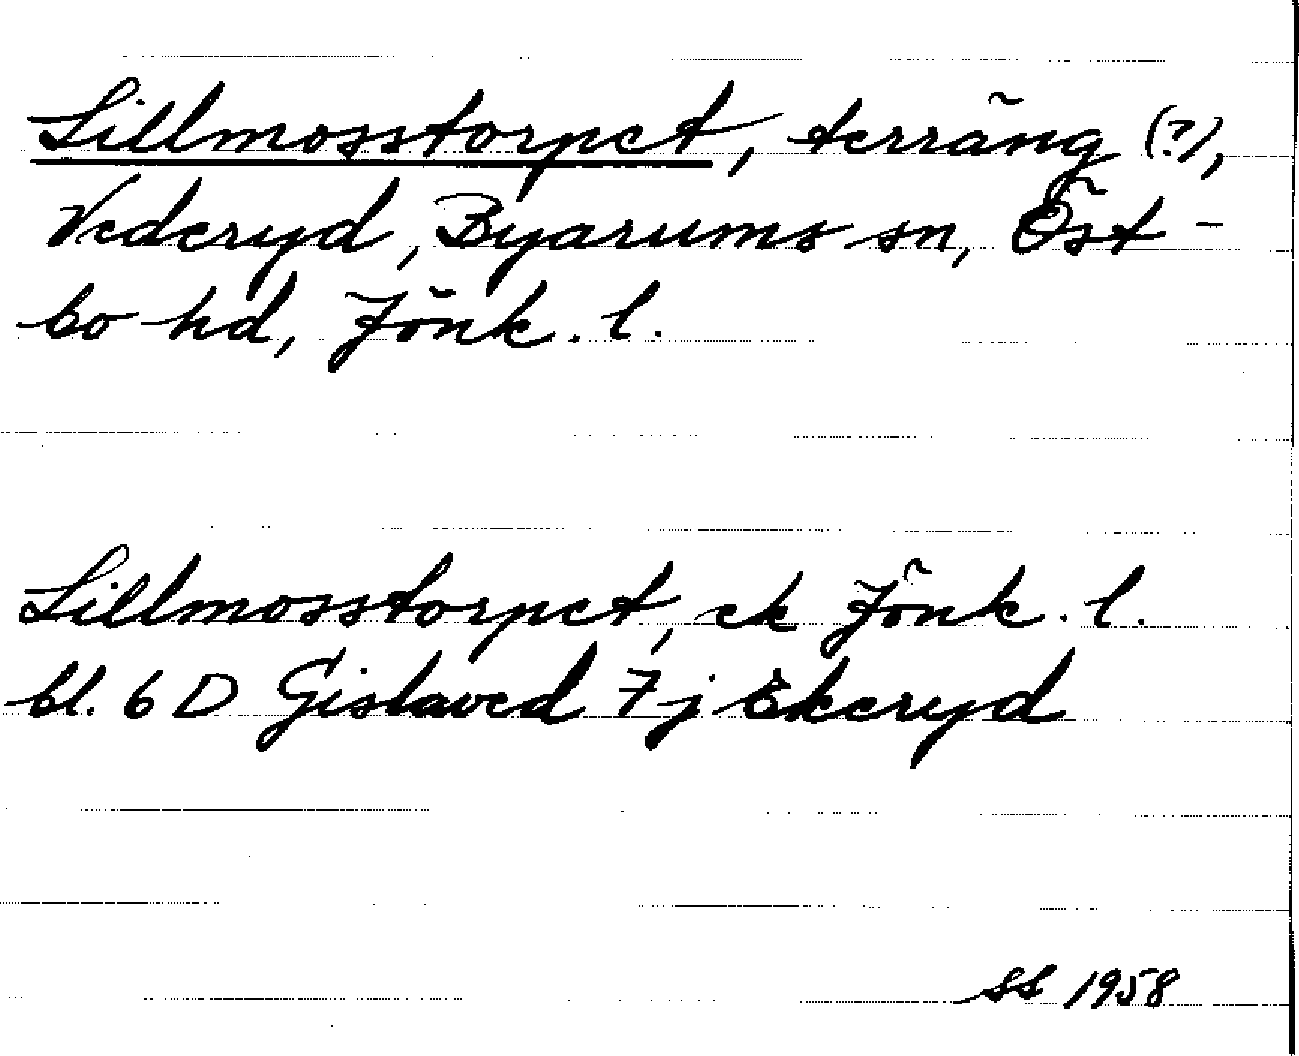 Lillmosstorpet, terräng (?),
Vederyd, Byarums sn, Öst-
bo hd, Jönk. l.
Lillmosstorpet, ek Jönk. l.
bl. 6 D Gislaved 7 j Ekeryd
SS 1958